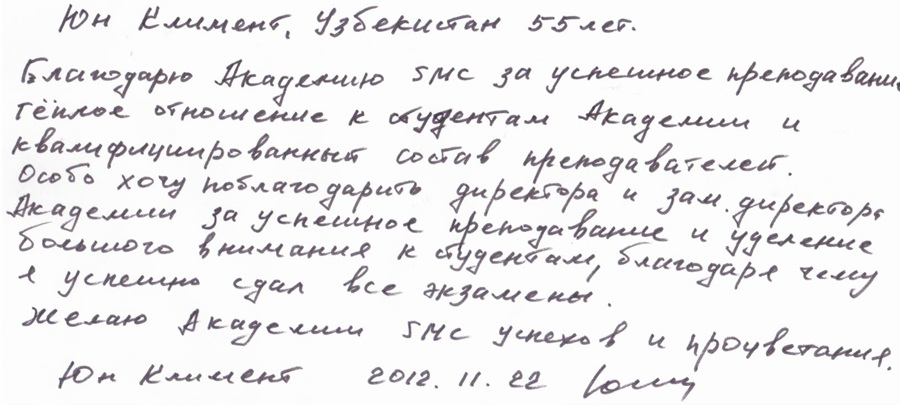 Юн Климент, Узбекистан 55 лет.
Благодарю Академию SMC за успешное преподавание
тёплое отношение к студентам Академии и
квалифицированный состав преподавателей.
Особо хочу поблагодарить директора и зам. директора
Академии за успешное преподавание и уделение
большого внимания к студентам, благодаря чему
я успешно сдал все экзамены.
Желаю Академии SMC успехов и процветания.
Юн Климент 2012. 11. 22